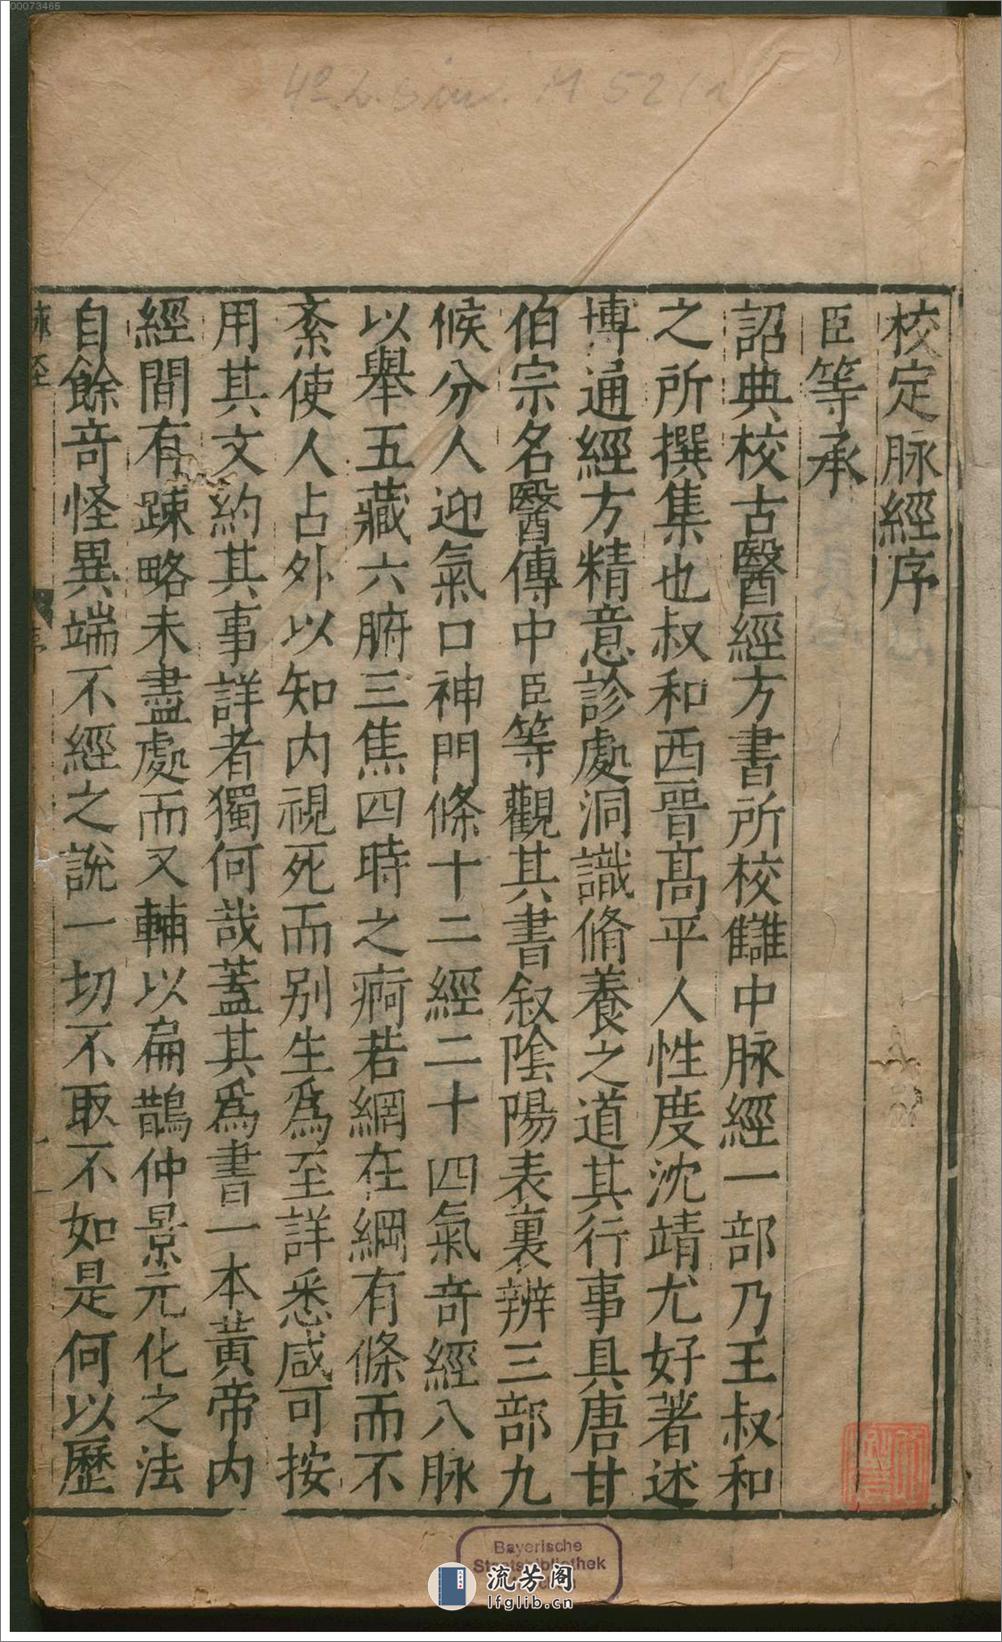 00073465
校定脉經序
臣等承
詔典校古醫經方書所校讎中脉經一部乃王叔和
之所撰集也叔和西晉髙平人性度沈靖尤好著述
博通經方精意診處洞識脩養之道其行事具唐甘
伯宗名醫傳中臣等觀其書叙陰陽表裏辨三部九
候分人迎氣口神門條十二經二十四氣竒經八脉
以舉五藏六腑三焦四時之痾若網在綱有條而不
紊使人占外以知内視死而别生爲至詳悉咸可按
用其文約其事詳者獨何哉蓋其爲書一本黃帝内
經間有踈略未盡處而又輔以扁鵲仲景元化之法
自餘竒怪異端不經之說一切不取不如是何以歷
脉經
序
Bayerische
Staatsbibliothek
流芳阁
lfglib.cn